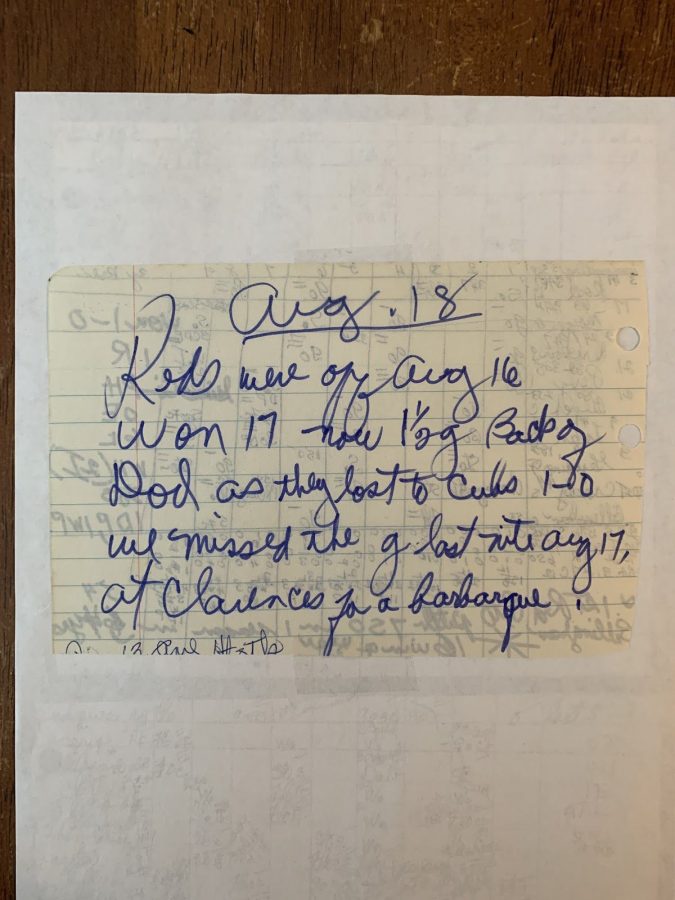 Aug. 18
Reds were off Aug 16
Won 17 now 1½g Back of
Dod as they lost to Cubs 1-0
we missed the g last nite aug 17,
at Clarences for a barbarque.